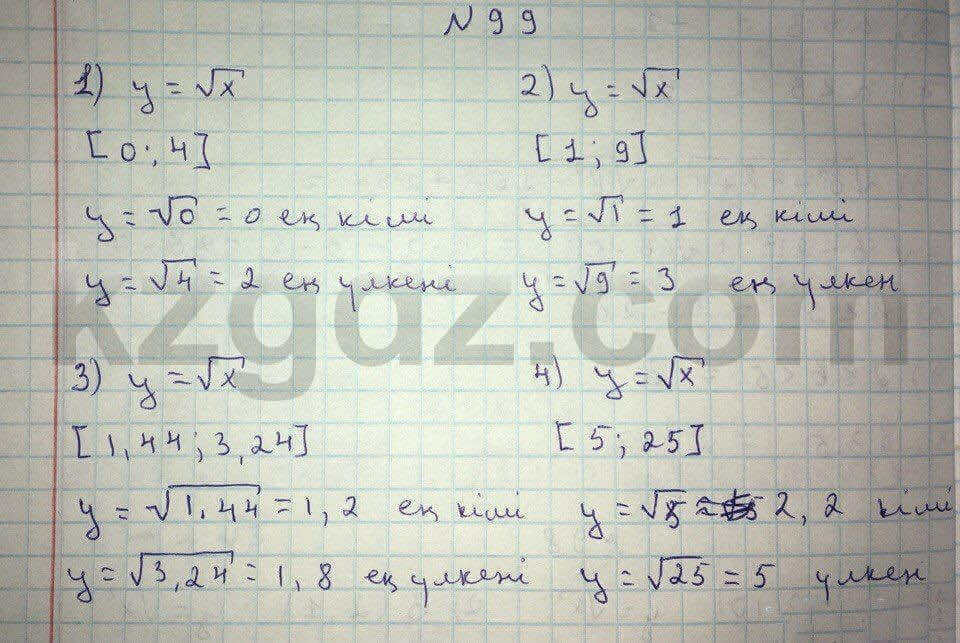 N 99
1) y = √x
[0; 4]
y = √0 = 0 ең кіші
y = √4 = 2 ең үлкені
2) y = √x
[1; 9]
y = √1 = 1 ең кіші
y = √9 = 3 ең үлкен
3) y = √x
[1,44; 3,24]
y = √1,44 = 1,2 ең кіші
y = √3,24 = 1,8 ең үлкені
4) y = √x
[5; 25]
y = √5 = 2,2 кіші
y = √25 = 5 үлкен
kzgdz.com